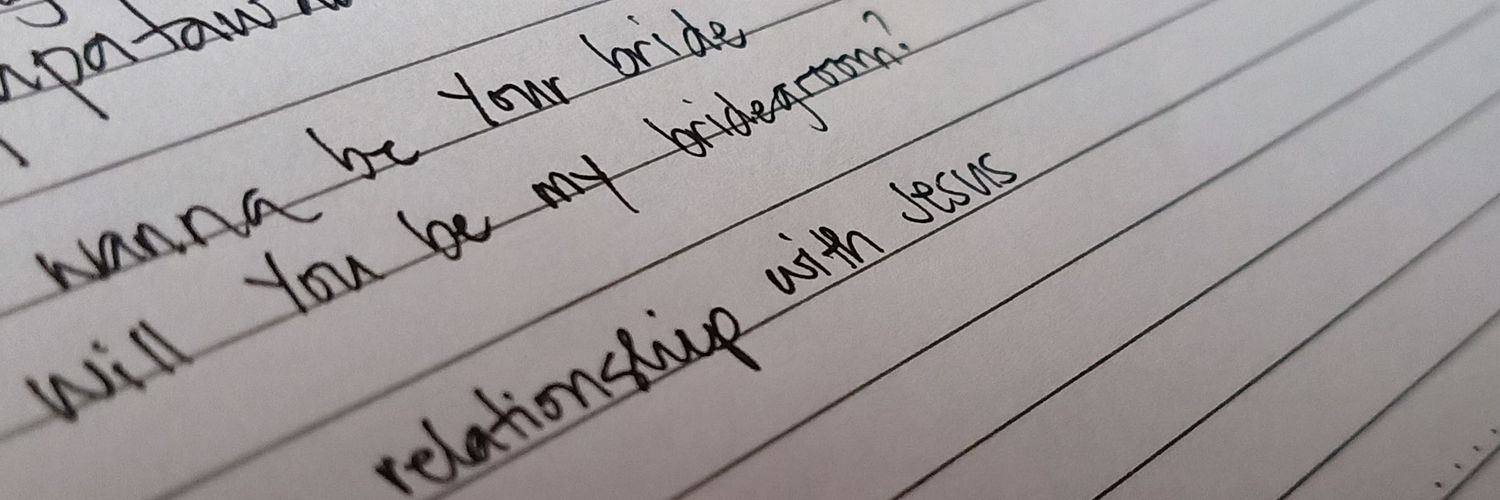 wanna be Your bride
Will You be my bridegroom?
relationship with Jesus